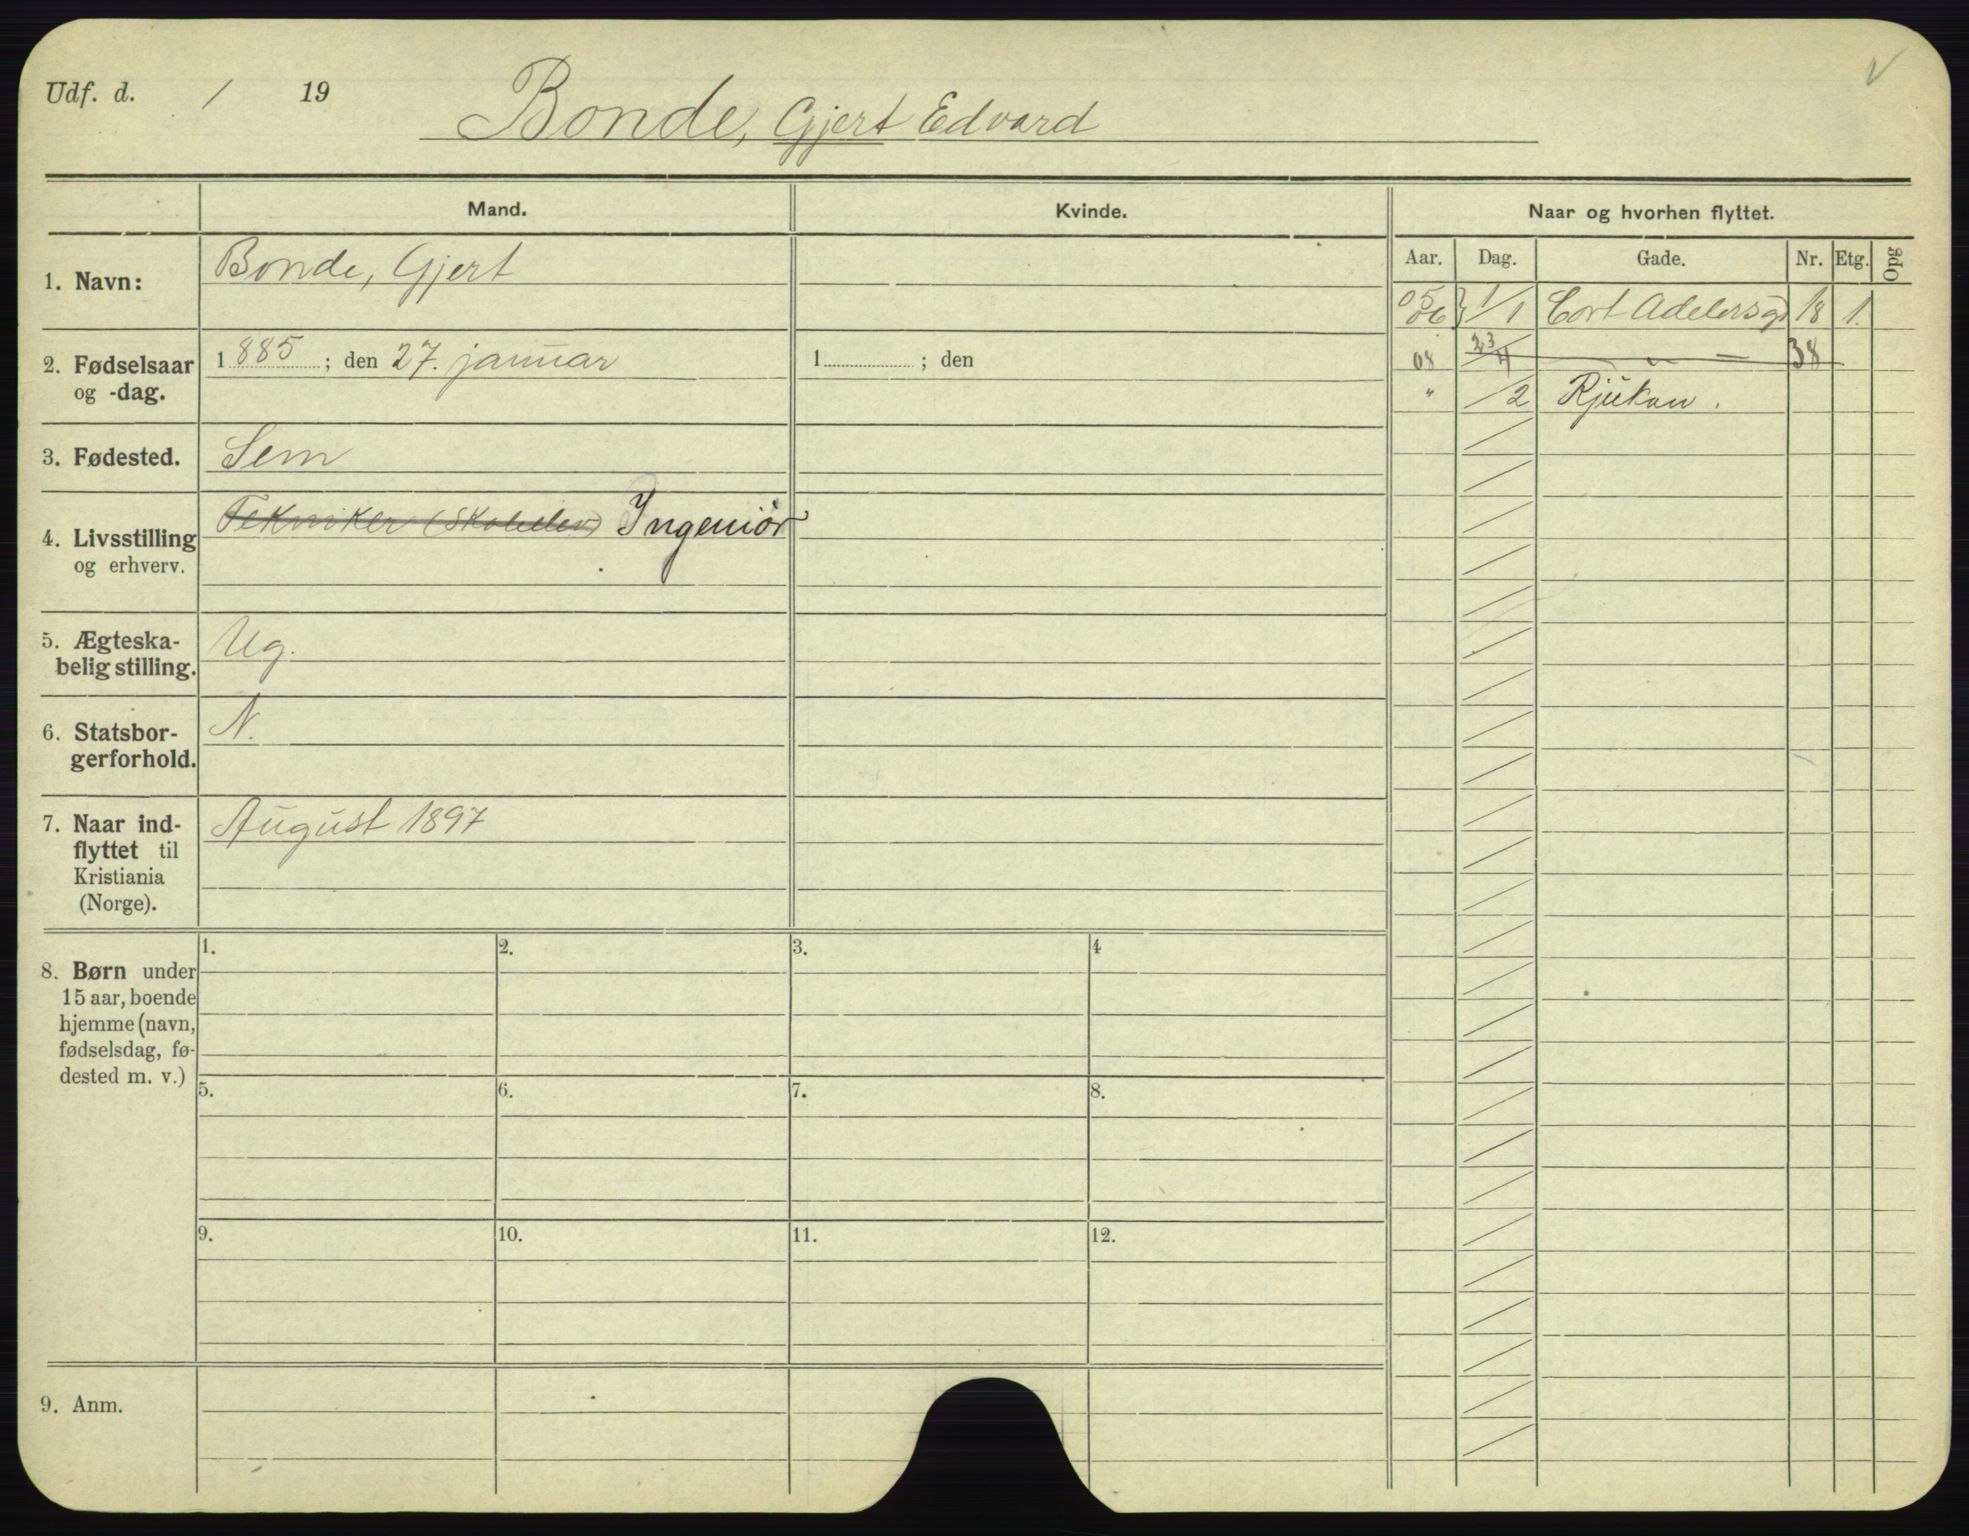 Udf. d. / 19
Bonde, Gjert Edvard
Mand.
Kvinde.
Naar og hvorhen flyttet.
Aar. Dag. Gade. Nr. Etg. Opg
1. Navn:
Bonde, Gjert
05 06 } 1/1 Cort Adelersgt 18 1.
08 23/4 — " — 38
" /2 Rjukan.
2. Fødselsaar
og -dag.
1885; den 27. januar
1 ; den
3. Fødested.
Sem
4. Livsstilling
og erhverv.
Tekniker (Skoleelev) Ingeniør
5. Ægteska-
belig stilling.
Ug.
6. Statsbor-
gerforhold.
N.
7. Naar ind-
flyttet til
Kristiania
(Norge).
August 1897
8. Børn under
15 aar, boende
hjemme (navn,
fødselsdag, fø-
dested m. v.)
1. 2. 3. 4
5. 6. 7. 8.
9. 10. 11. 12.
9. Anm.